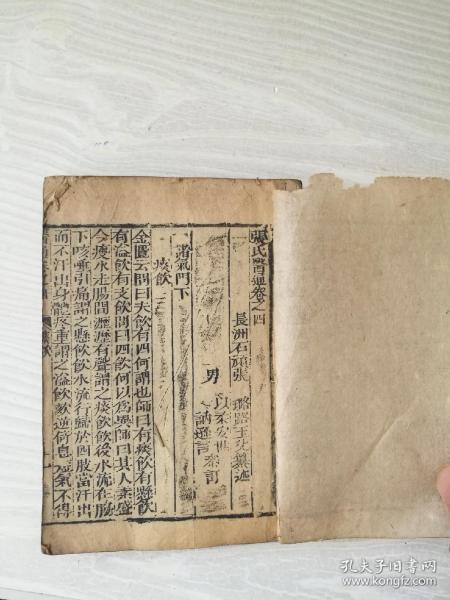 張氏醫通卷之四
長洲石頑張 璐路玉父纂述
男 以柔安世
訥遜言 參訂
諸氣門下
痰飲
金匱云問曰夫飲有四何謂也師曰有痰飲有懸飲
有溢飲有支飲問曰四飲何以為異師曰其人素盛
今瘦水走腸間瀝瀝有聲謂之痰飲飲後水流在脇
下咳唾引痛謂之懸飲飲水流行歸於四肢當汗出
而不汗出身體疼重謂之溢飲欬逆倚息短氣不得
孔夫子旧书网
www.kongfz.com